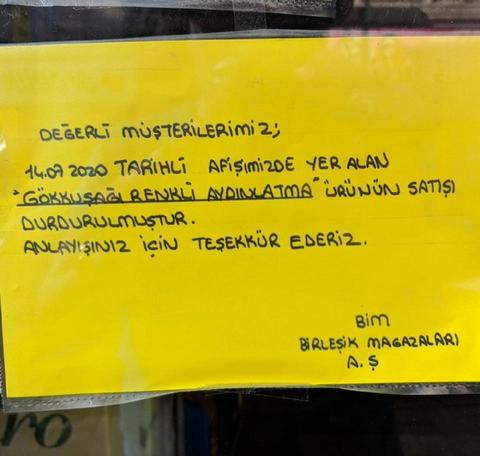 DEĞERLİ MÜŞTERİLERİMİZ;
14.07.2020 TARİHLİ AFİŞİMİZDE YER ALAN
"GÖKKUŞAĞI RENKLİ AYDINLATMA" ÜRÜNÜN SATIŞI
DURDURULMUŞTUR.
ANLAYIŞINIZ İÇİN TEŞEKKÜR EDERİZ.
BİM
BİRLEŞİK MAGAZALARI
A.Ş
ro